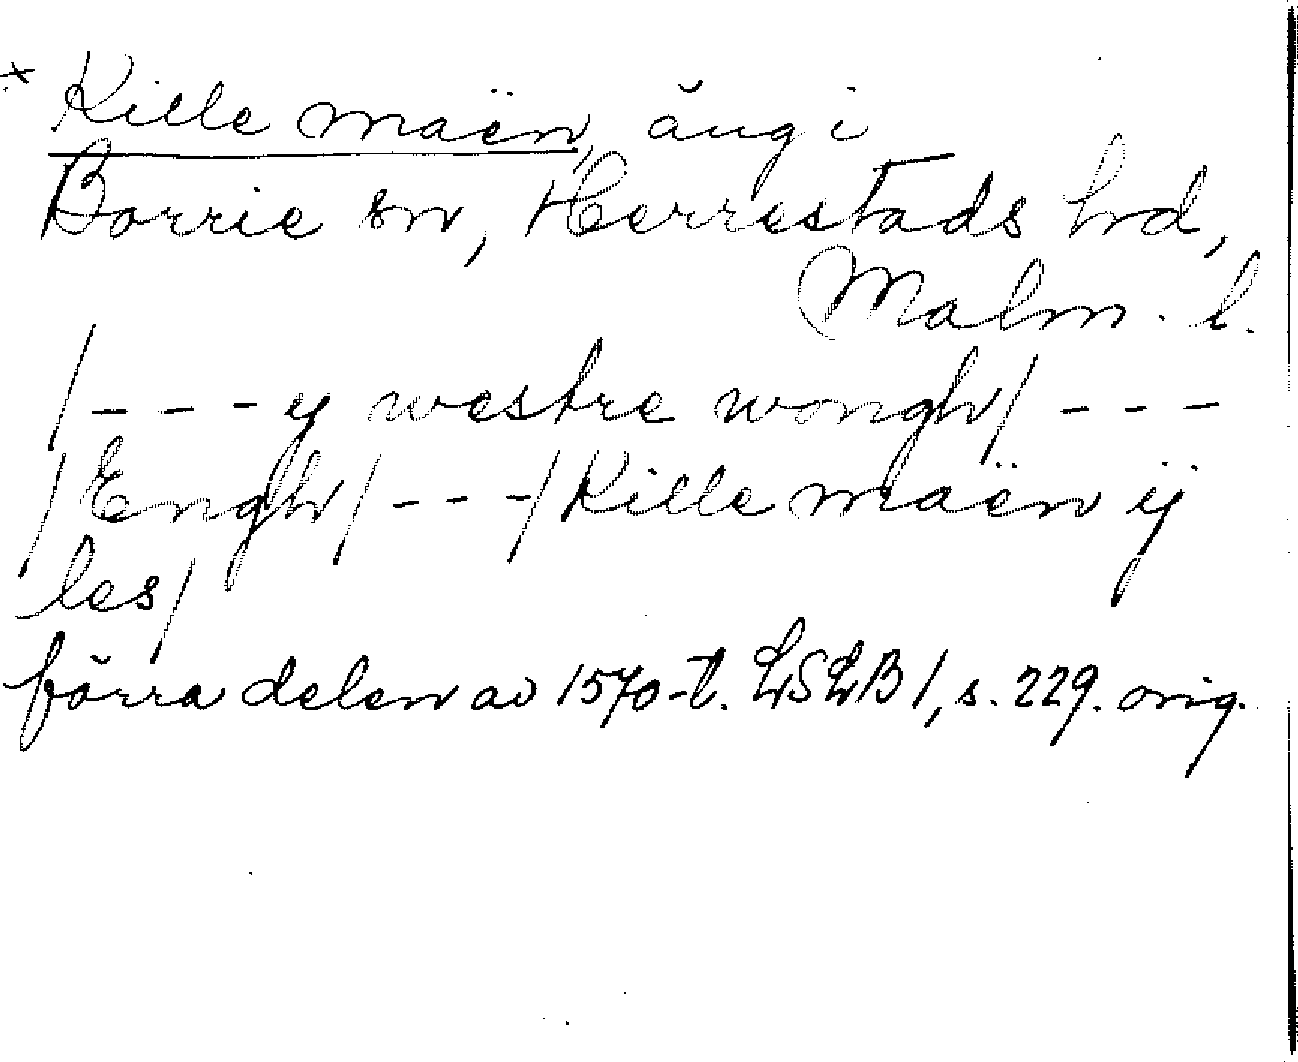 × Kille maën, äng i
Borrie sn, Herrestads hd,
Malm. l.
/ - - - y westre wongh / - - -
/ Engh / - - - / Kille maën ÿ
les /
förra delen av 1570-t. LSLB 1, s. 229. orig.